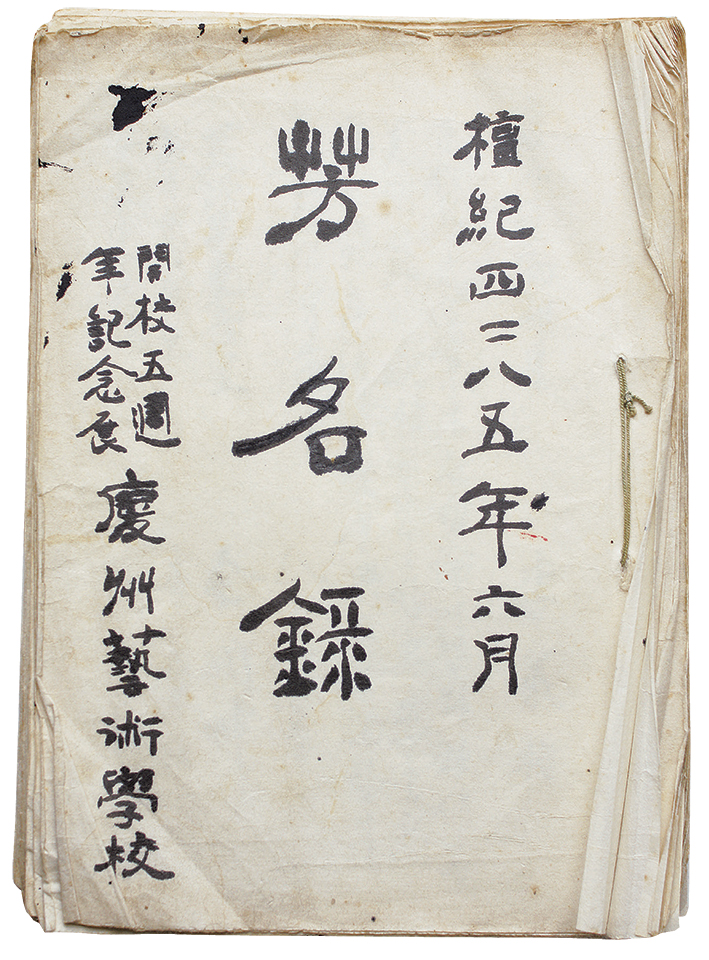 檀紀四二八五年六月
芳名錄
開校五週
年記念展
慶州藝術學校